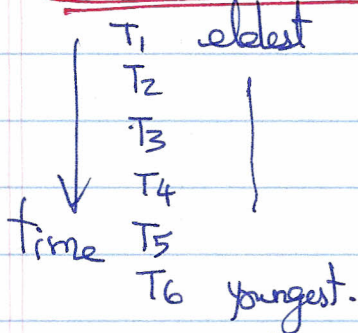 T1 eldest
T2
T3
T4
time T5
T6 youngest.